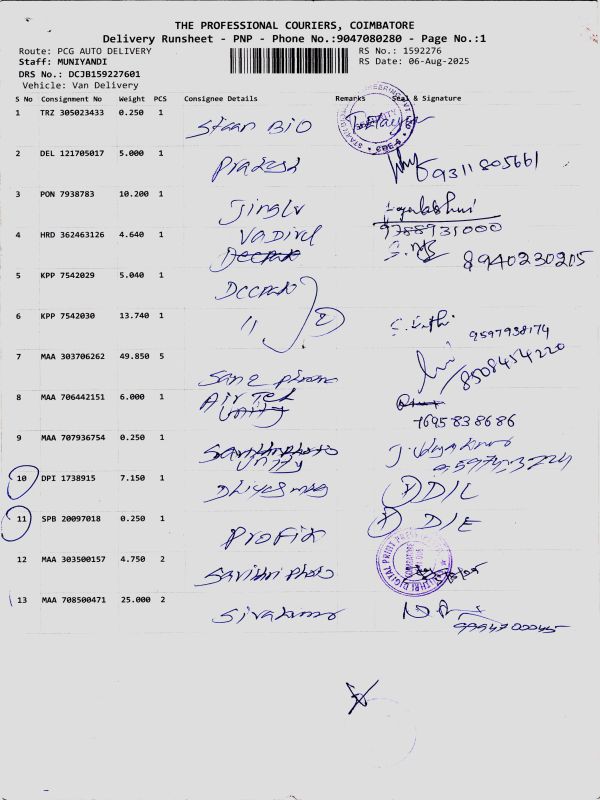 THE PROFESSIONAL COURIERS, COIMBATORE
Delivery Runsheet - PNP - Phone No.:9047080280 - Page No.:1
Route: PCG AUTO DELIVERY
RS No.: 1592276
Staff: MUNIYANDI
RS Date: 06-Aug-2025
DRS No.: DCJB159227601
Vehicle: Van Delivery
S No Consignment No Weight PCS Consignee Details Remarks Seal & Signature
1 TRZ 305023433 0.250 1 Staan BIO
2 DEL 121705017 5.000 1 Pradeesh 9311805661
3 PON 7938783 10.200 1 Jinglu
9788931000
4 HRD 362463126 4.640 1 Vadivel
8940230205
5 KPP 7542029 5.040 1 Deepak
6 KPP 7542030 13.740 1 11 2
9597938174
7 MAA 303706262 49.850 5
8508454220
8 MAA 706442151 6.000 1 Air Tel
7695838686
9 MAA 707936754 0.250 1 Unity
10 DPI 1738915 7.150 1 D/L
11 SPB 20097018 0.250 1 D/E
12 MAA 303500157 4.750 2 Savithri Photo
13 MAA 708500471 25.000 2 Sivakumar